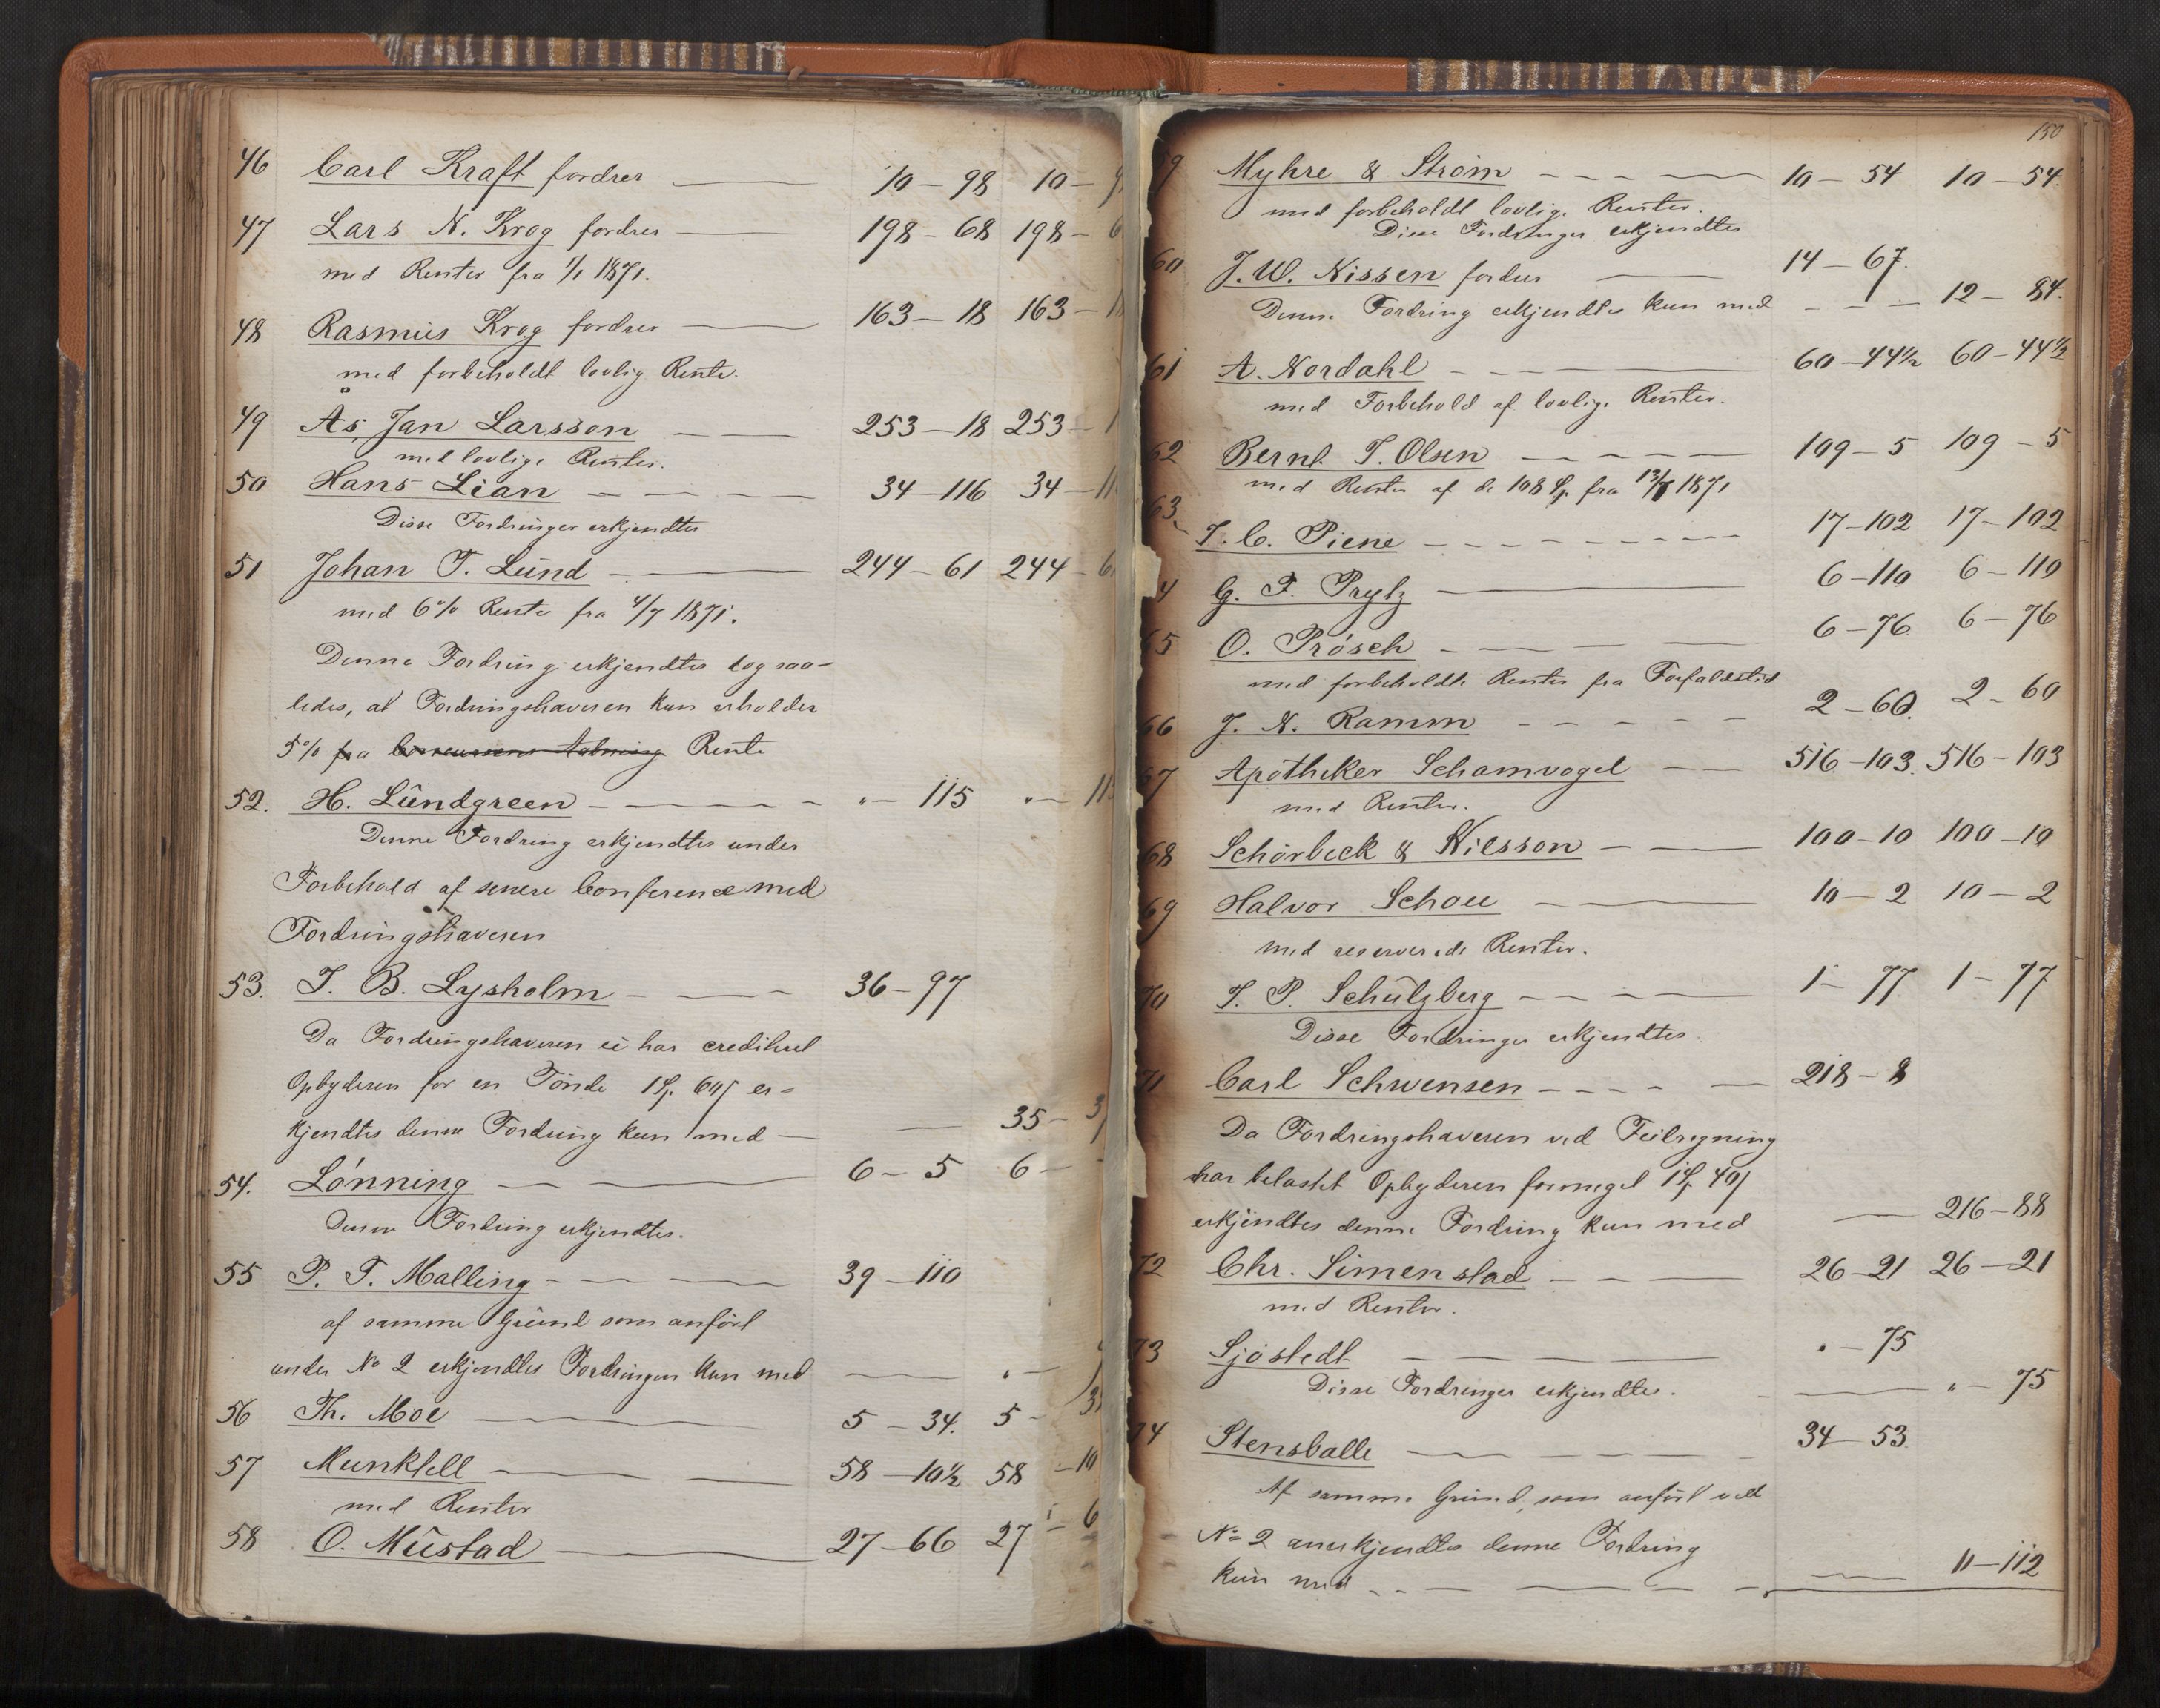 46 Carl Kraft fordrer 10 – 98 10 – 9
47 Lars N. Krog fordrer 198 – 68 198 – 6
med Renter fra 1/1 1871.
48 Rasmus Krog fordrer 163 – 18 163 – 1
med forbeholdt lovlig Rente.
49 Ås, Jan Larsson 253 – 18 253 – 1
med lovlige Renter.
50 Hans Lian 34 – 116 34 – 11
Disse Fordringer erkjendtes
51 Johan T. Lund 244 – 61 244 – 6
med 6% Rente fra 4/7 1871.
Denne Fordring erkjendtes dog saa-
ledes, at Fordringshaveren kun erholder
5% fra Rente
52. H. Lundgreen " – 115 " – 11
Denne Fordring erkjendtes under
Forbehold af senere Conference med
Fordringshaveren
53. I. B. Lysholm 36 – 97
Da Fordringshaveren ei har crediteret
Opbyderen for en Tønde 1 Sp. 60 ß er-
kjendtes denne Fordring kun med 35 – 3
54. Lønning 6 – 5 6 –
Denne Fordring erkjendtes.
55 P. T. Malling 39 – 110
af samme Grund som anført
under No 2 erkjendtes Fordringen kun med " –
56 Th. Moe 5 – 34. 5 – 3
57 Munktell 58 – 10½ 58 – 10
med Renter
58 O. Mustad 27 – 66 27 – 6
150
9 Myhre & Strøm 10 – 54 10 – 54.
med forbeholdt lovlige Renter.
Disse Fordringer erkjendtes
60 J. W. Nissen fordrer 14 – 67.
Denne Fordring erkjendtes kun med 12 – 84.
61 A. Nordahl 60 – 44½ 60 – 44½
med Forbehold af lovlige Renter.
62 Bernt T. Olsen 109 – 5 109 – 5
med Renter af de 108 Sp. fra 1871
63 I. C. Piene 17 – 102 17 – 102
4 G. F. Prytz 6 – 110 6 – 110
65 O. Prøsch 6 – 76 6 – 76
med forbeholdte Renter fra Forfaldstid
66 J. N. Ramm 2 – 60. 2 – 60
67 Apotheker Schamvogel 516 – 103. 516 – 103
med Renter.
68 Schörbeck & Nilsson 100 – 10 100 – 10
69 Halvor Schou 10 – 2 10 – 2
med reserverede Renter.
70 I. P. Schulzberg 1 – 77 1 – 77
Disse Fordringer erkjendtes.
71 Carl Schwensen 218 – 8
Da Fordringshaveren ved Feilregning
har belastet Opbyderen formeget 1 Sp. 40 ß
erkjendtes denne Fordring kun med 216 – 88
72 Chr. Simenstad 26 – 21 26 – 21
med Renter.
73 Sjöstedt " – 75
Disse Fordringer erkjendtes. " – 75
74 Stensballe 34 – 53.
Af samme Grund, som anført ved
No 2 anerkjendtes denne Fordring
kun med 11 – 112